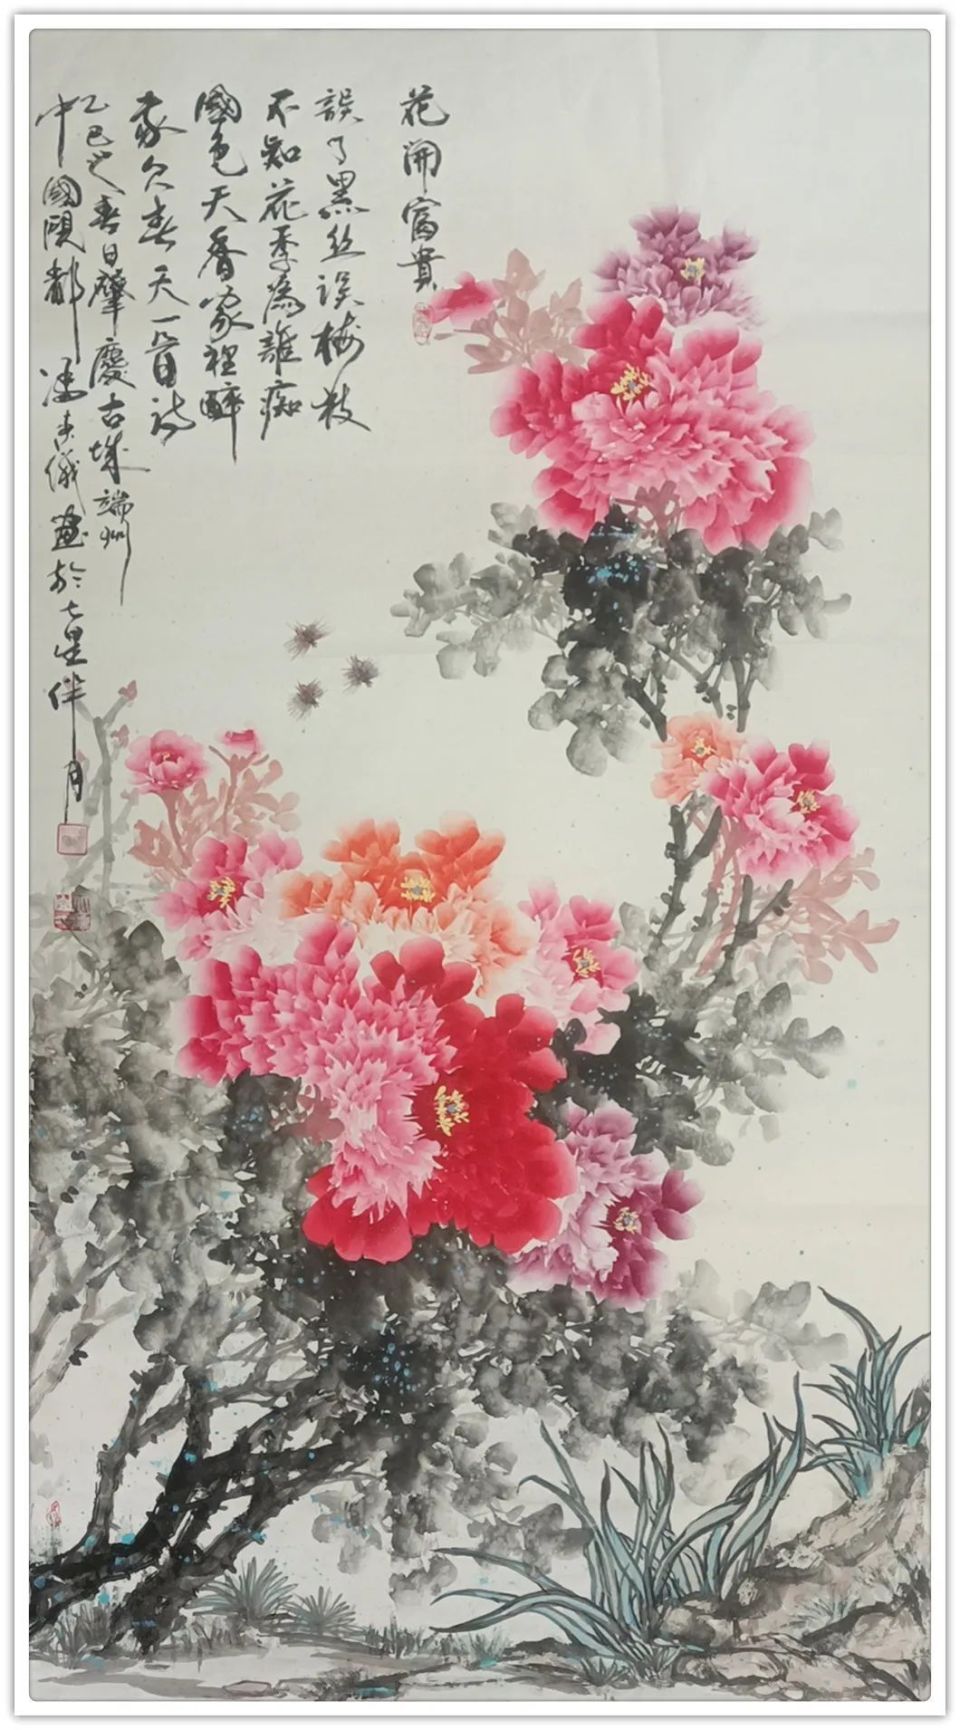 花開富貴
誤了黑丝誤梅枝
不知花季為誰痴
國色天香家裡醉
我欠春天一首詩
乙巳之春日肇慶古城端州
中國硯都 馮 儀畫於七星伴月